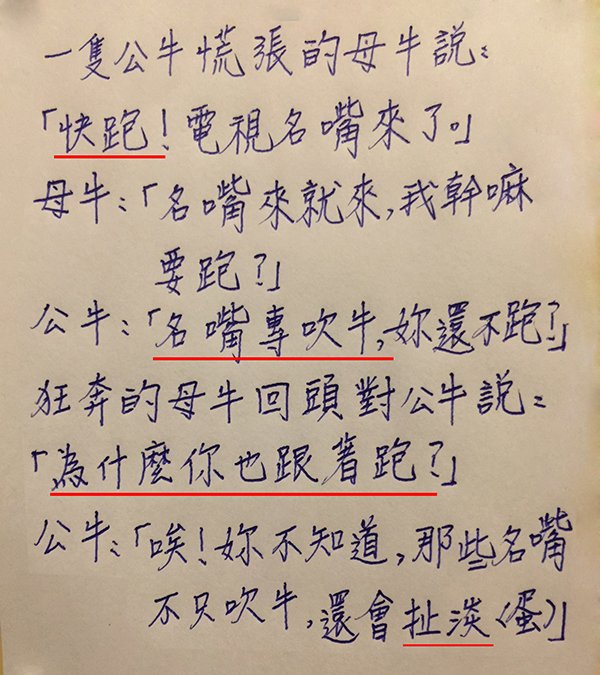 一隻公牛慌張的母牛說：
「快跑！電視名嘴來了。」
母牛：「名嘴來就來，我幹嘛
要跑？」
公牛：「名嘴專吹牛，妳還不跑？」
狂奔的母牛回頭對公牛說：
「為什麼你也跟著跑？」
公牛：「唉！妳不知道，那些名嘴
不只吹牛，還會扯淡〈蛋〉」